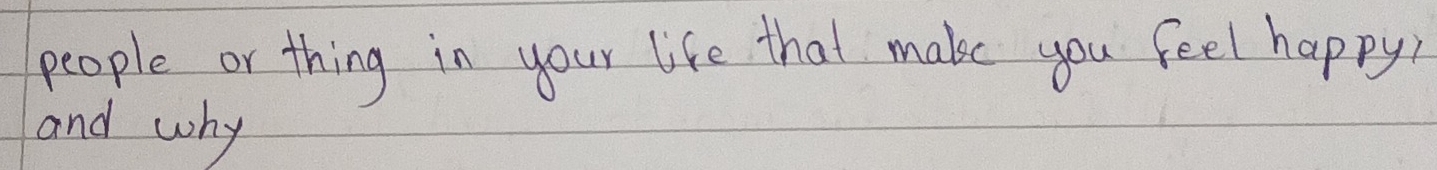 people or thing in your life that make you feel happy,
and why